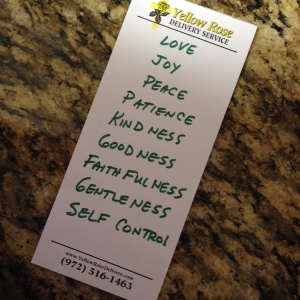 Yellow Rose
DELIVERY SERVICE
LOVE
JOY
PEACE
PATIENCE
KINDNESS
GOODNESS
FAITHFULNESS
GENTLENESS
SELF CONTROL
www.YellowRoseDelivery.com
(972) 516-1463